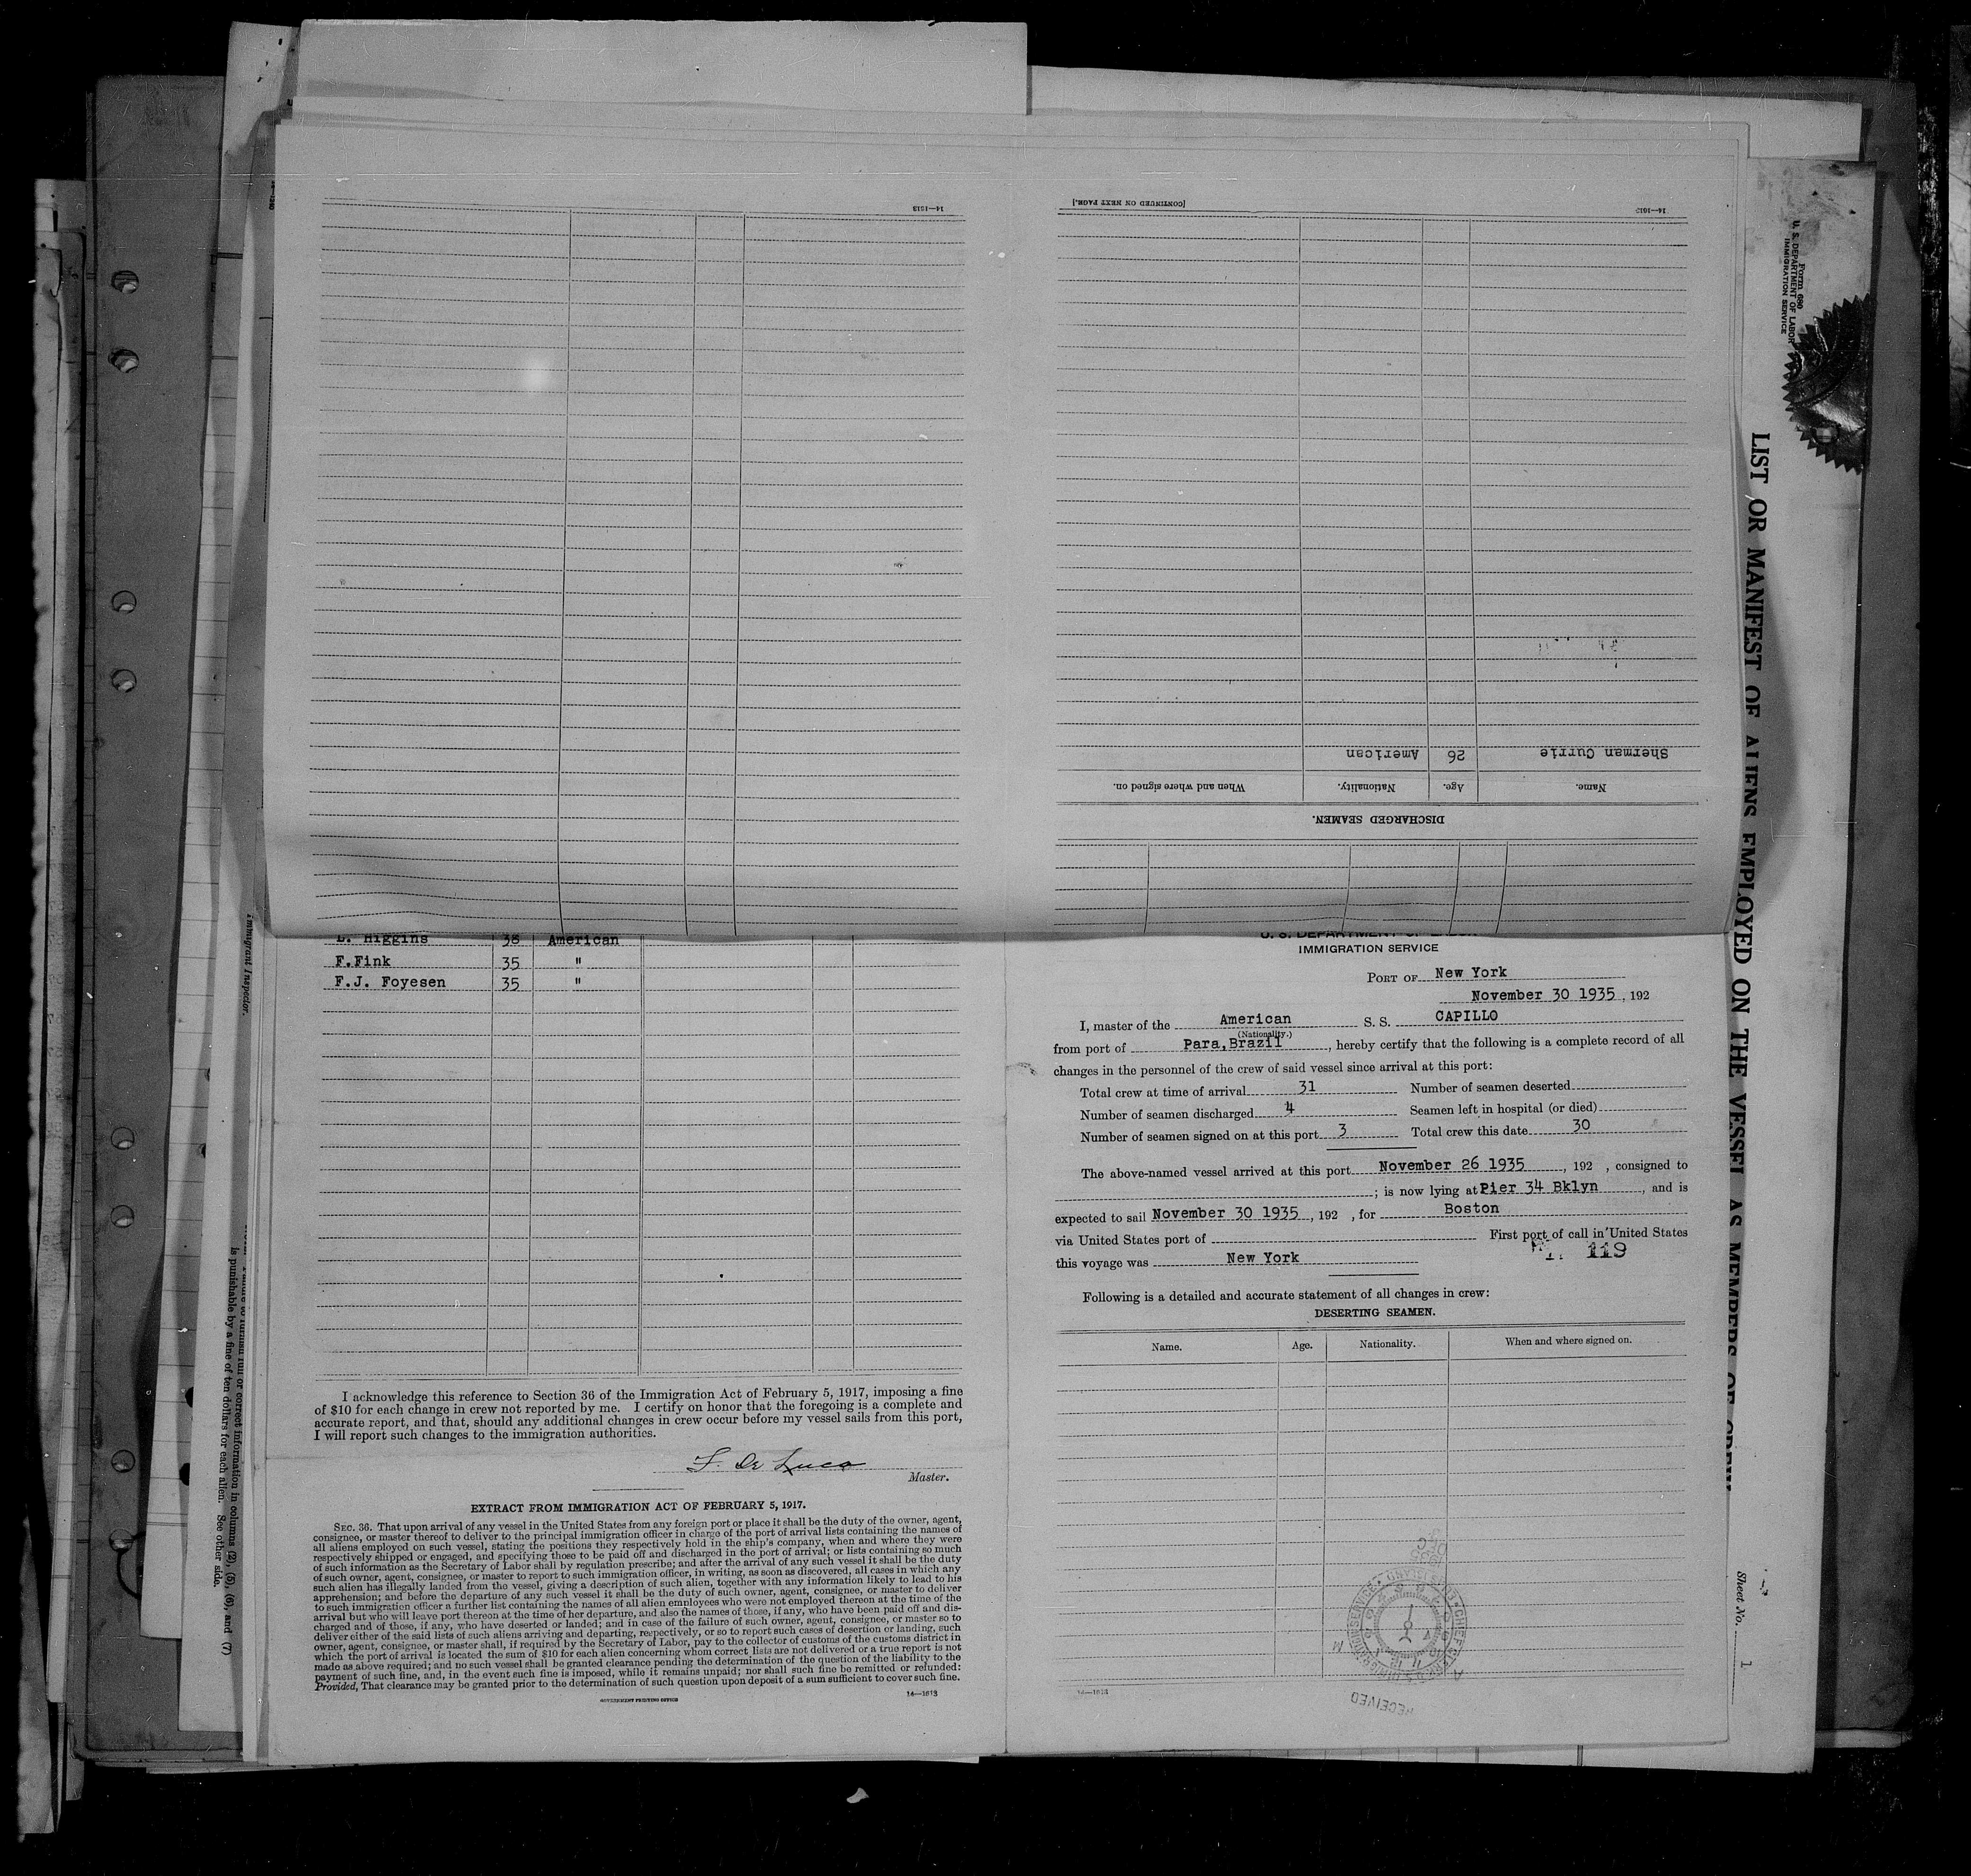 14—1613
[CONTINUED ON NEXT PAGE.]
14—1613
DISCHARGED SEAMEN.
Name. Age. Nationality. When and where signed on.
Sherman Currie 26 American
L. Higgins 38 American
F.Fink 35 "
F.J. Foyesen 35 "
I acknowledge this reference to Section 36 of the Immigration Act of February 5, 1917, imposing a fine
of $10 for each change in crew not reported by me. I certify on honor that the foregoing is a complete and
accurate report, and that, should any additional changes in crew occur before my vessel sails from this port,
I will report such changes to the immigration authorities.
F. De Luca
Master.
EXTRACT FROM IMMIGRATION ACT OF FEBRUARY 5, 1917.
SEC. 36. That upon arrival of any vessel in the United States from any foreign port or place it shall be the duty of the owner, agent,
consignee, or master thereof to deliver to the principal immigration officer in charge of the port of arrival lists containing the names of
all aliens employed on such vessel, stating the positions they respectively hold in the ship's company, when and where they were
respectively shipped or engaged, and specifying those to be paid off and discharged in the port of arrival; or lists containing so much
of such information as the Secretary of Labor shall by regulation prescribe; and after the arrival of any such vessel it shall be the duty
of such owner, agent, consignee, or master to report to such immigration officer, in writing, as soon as discovered, all cases in which any
such alien has illegally landed from the vessel, giving a description of such alien, together with any information likely to lead to his
apprehension; and before the departure of any such vessel it shall be the duty of such owner, agent, consignee, or master to deliver
to such immigration officer a further list containing the names of all alien employees who were not employed thereon at the time of the
arrival but who will leave port thereon at the time of her departure, and also the names of those, if any, who have been paid off and dis-
charged and of those, if any, who have deserted or landed; and in case of the failure of such owner, agent, consignee, or master so to
deliver either of the said lists of such aliens arriving and departing, respectively, or so to report such cases of desertion or landing, such
owner, agent, consignee, or master shall, if required by the Secretary of Labor, pay to the collector of customs of the customs district in
which the port of arrival is located the sum of $10 for each alien concerning whom correct lists are not delivered or a true report is not
made as above required; and no such vessel shall be granted clearance pending the determination of the question of the liability to the
payment of such fine, and, in the event such fine is imposed, while it remains unpaid; nor shall such fine be remitted or refunded:
Provided, That clearance may be granted prior to the determination of such question upon deposit of a sum sufficient to cover such fine.
GOVERNMENT PRINTING OFFICE
14—1613
IMMIGRATION SERVICE
PORT OF New York
November 30 1935, 192
I, master of the American S. S. CAPILLO
(Nationality.)
from port of Para,Brazil, hereby certify that the following is a complete record of all
changes in the personnel of the crew of said vessel since arrival at this port:
Total crew at time of arrival 31 Number of seamen deserted
Number of seamen discharged 4 Seamen left in hospital (or died)
Number of seamen signed on at this port 3 Total crew this date 30
The above-named vessel arrived at this port November 26 1935, 192 , consigned to
; is now lying at Pier 34 Bklyn, and is
expected to sail November 30 1935, 192 , for Boston
via United States port of First port of call in United States
this voyage was New York
119
Following is a detailed and accurate statement of all changes in crew:
DESERTING SEAMEN.
Name. Age. Nationality. When and where signed on.
14—1613
RECEIVED
Form 680
U. S. DEPARTMENT OF LABOR
IMMIGRATION SERVICE
LIST OR MANIFEST OF ALIENS EMPLOYED ON THE VESSEL AS MEMBERS OF CREW
Sheet No. 1
Immigrant Inspector.
full or correct information in columns (2), (5), (6), and (7)
is punishable by a fine of ten dollars for each alien. See other side.